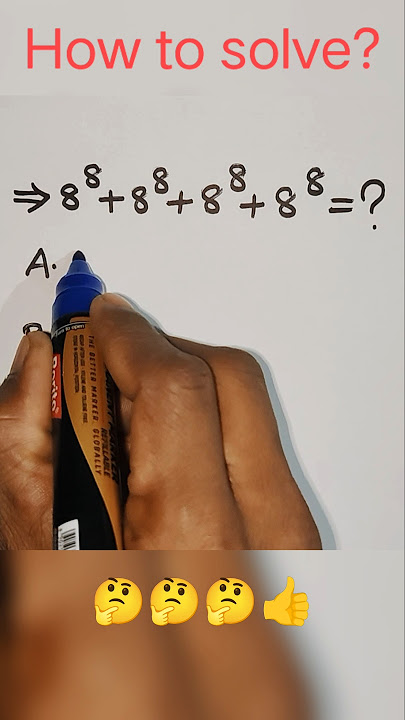 How to solve?
⇒ 8⁸ + 8⁸ + 8⁸ + 8⁸ = ?
A.
THE BETTER MARKER, GLOBALLY
REFILLABLE